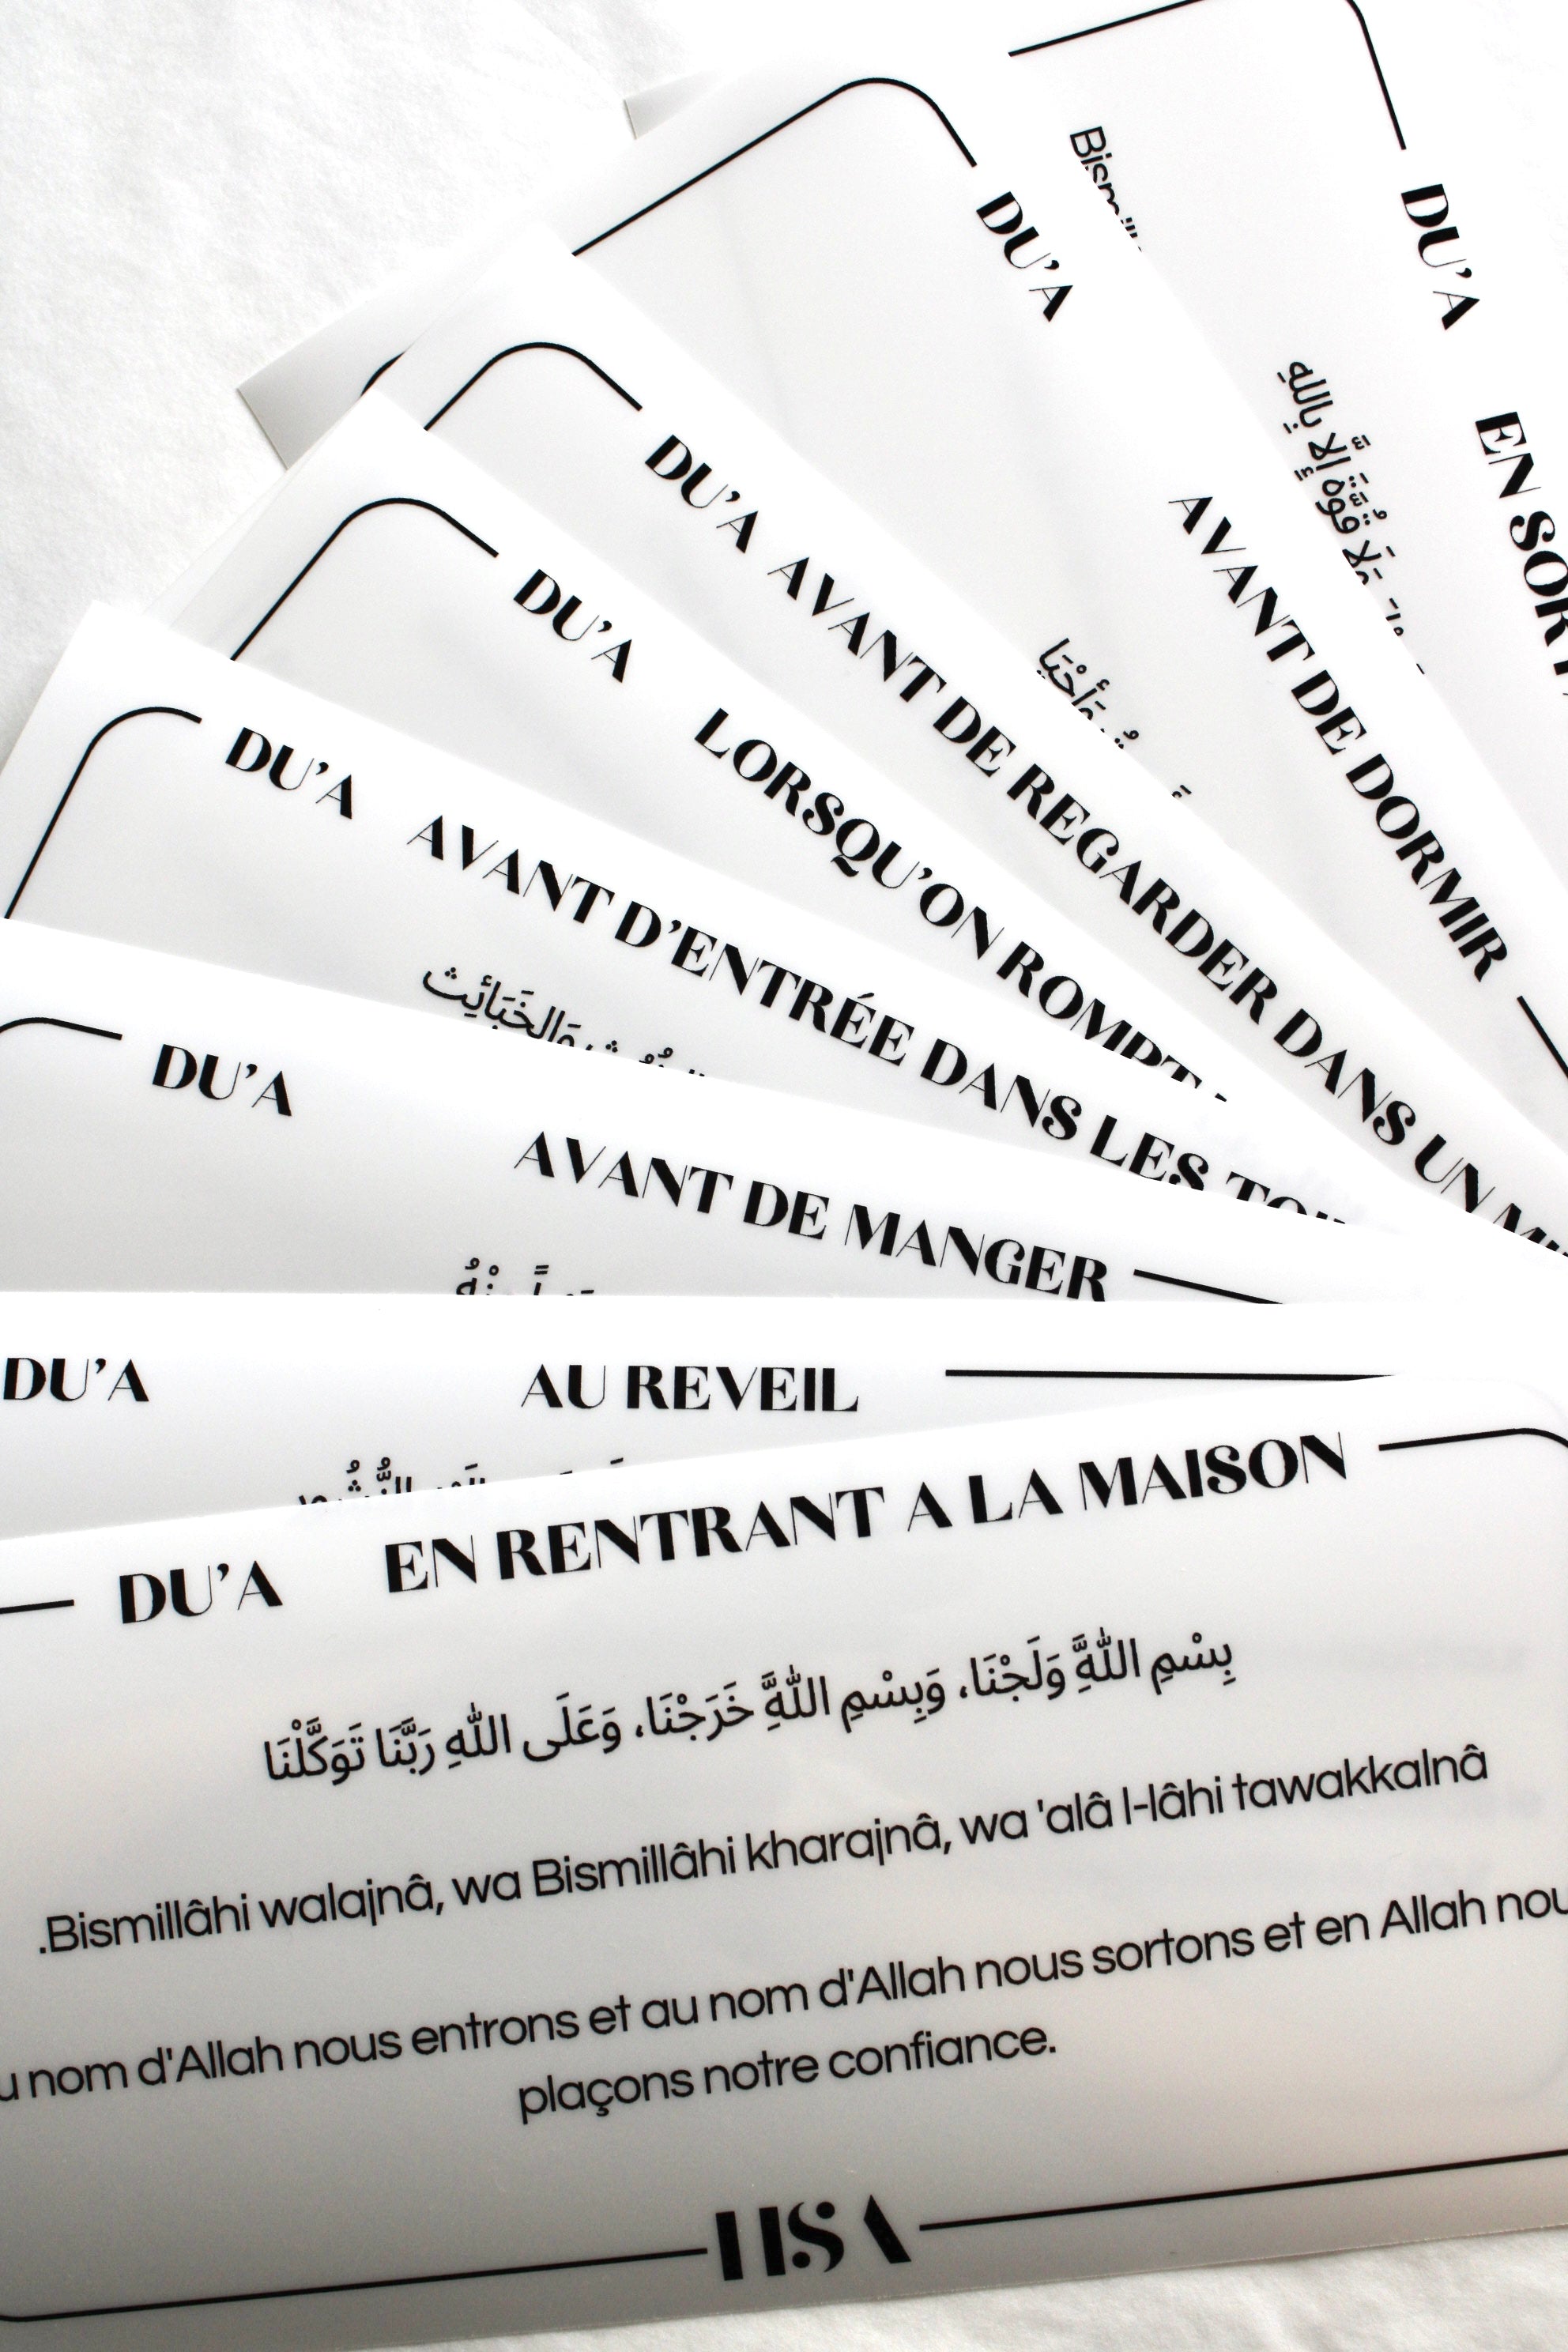 DU'A
EN
Bismill
بِاللهِ
قُوَّةَ إِلَّا
وَلَا
DU'A AVANT DE DORMIR
وَأَحْيَا
DU'A AVANT DE REGARDER DANS UN
DU'A LORSQU'ON ROMPT
DU'A AVANT D'ENTRÉE DANS LES
وَالخَبَائِث
DU'A AVANT DE MANGER
DU'A AU REVEIL
النُّشُور
DU'A EN RENTRANT A LA MAISON
بِسْمِ اللَّهِ وَلَجْنَا، وَبِسْمِ اللَّهِ خَرَجْنَا، وَعَلَى اللهِ رَبَّنَا تَوَكَّلْنَا
.Bismillâhi walajnâ, wa Bismillâhi kharajnâ, wa 'alâ l-lâhi tawakkalnâ
u nom d'Allah nous entrons et au nom d'Allah nous sortons et en Allah nou
plaçons notre confiance.